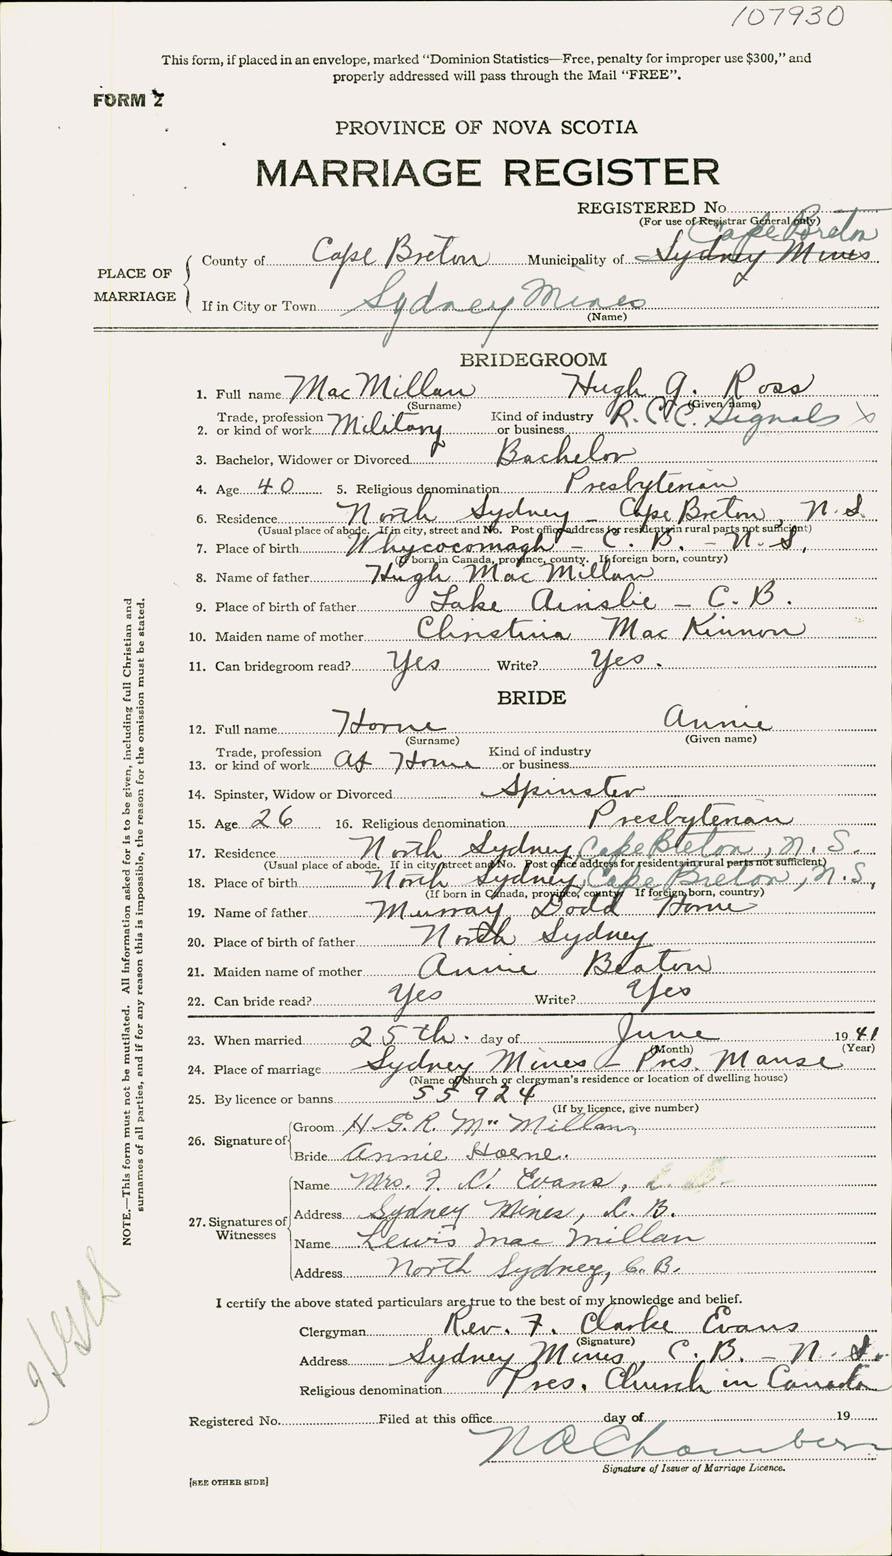 107930
This form, if placed in an envelope, marked "Dominion Statistics—Free, penalty for improper use $300," and
properly addressed will pass through the Mail "FREE".
FORM 2
PROVINCE OF NOVA SCOTIA
MARRIAGE REGISTER
REGISTERED No.
(For use of Registrar General only)
Cape Breton
PLACE OF MARRIAGE
County of Cape Breton Municipality of Sydney Mines
If in City or Town Sydney Mines
(Name)
BRIDEGROOM
1. Full name MacMillan Hugh G. Ross
(Surname) (Given name)
2. Trade, profession or kind of work Military Kind of industry or business R.C.C. Signals x
3. Bachelor, Widower or Divorced Bachelor
4. Age 40 5. Religious denomination Presbyterian
6. Residence North Sydney - Cape Breton, N.S.
(Usual place of abode. If in city, street and No. Post office address for residents in rural parts not sufficient)
7. Place of birth Whycocomagh - C.B. - N.S.
(If born in Canada, province, county. If foreign born, country)
8. Name of father Hugh MacMillan
9. Place of birth of father Lake Ainslie - C.B.
10. Maiden name of mother Christina MacKinnon
11. Can bridegroom read? Yes Write? Yes.
BRIDE
12. Full name Horne Annie
(Surname) (Given name)
13. Trade, profession or kind of work At Home Kind of industry or business
14. Spinster, Widow or Divorced Spinster
15. Age 26 16. Religious denomination Presbyterian
17. Residence North Sydney, Cape Breton, N.S.
(Usual place of abode. If in city, street and No. Post office address for residents in rural parts not sufficient)
18. Place of birth North Sydney, Cape Breton, N.S.,
(If born in Canada, province, county. If foreign born, country)
19. Name of father Murray Dodd Horne
20. Place of birth of father North Sydney
21. Maiden name of mother Annie Beaton
22. Can bride read? Yes Write? Yes
23. When married 25th. day of June 1941
(Month) (Year)
24. Place of marriage Sydney Mines - Pres. Manse
(Name of church or clergyman's residence or location of dwelling house)
25. By licence or banns 55924
(If by licence, give number)
26. Signature of Groom H.G.R. McMillan,
Bride Annie Horne.
27. Signatures of Witnesses
Name Mrs. F. C. Evans,
Address Sydney Mines, C.B.
Name Lewis MacMillan
Address North Sydney, C.B.
I certify the above stated particulars are true to the best of my knowledge and belief.
Clergyman Rev. F. Clarke Evans
(Signature)
Address Sydney Mines, C.B. - N.S.
Religious denomination Pres. Church in Canada
Registered No. Filed at this office day of 19
Signature of Issuer of Marriage Licence.
[SEE OTHER SIDE]
NOTE.—This form must not be mutilated. All information asked for is to be given, including full Christian and
surnames of all parties, and if for any reason this is impossible, the reason for the omission must be stated.